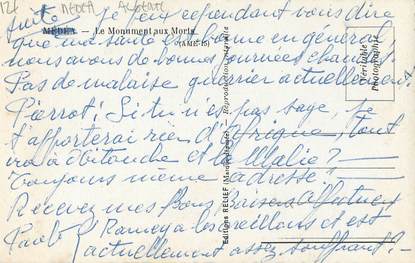 12f MEDEA
suite je peux cependant vous dire
MÉDÉA — Le Monument aux Morts
que ma santé est bonne en général
(AMÉ-15)
nous avons de bonnes journées chaudes
Pas de malaise guerrier actuellement.
Pierrot ! Si tu n'es pas sage, je
t'apporterai rien d'Afrique, tout
ira à et la Malie ?
Toujours même adresse
Recevez mes Bons Baisers
Paul Ramey a les oreillons et est
actuellement assez souffrant ! -
Editions RELIEF
Reproduction interdite
Véritable
Photographie